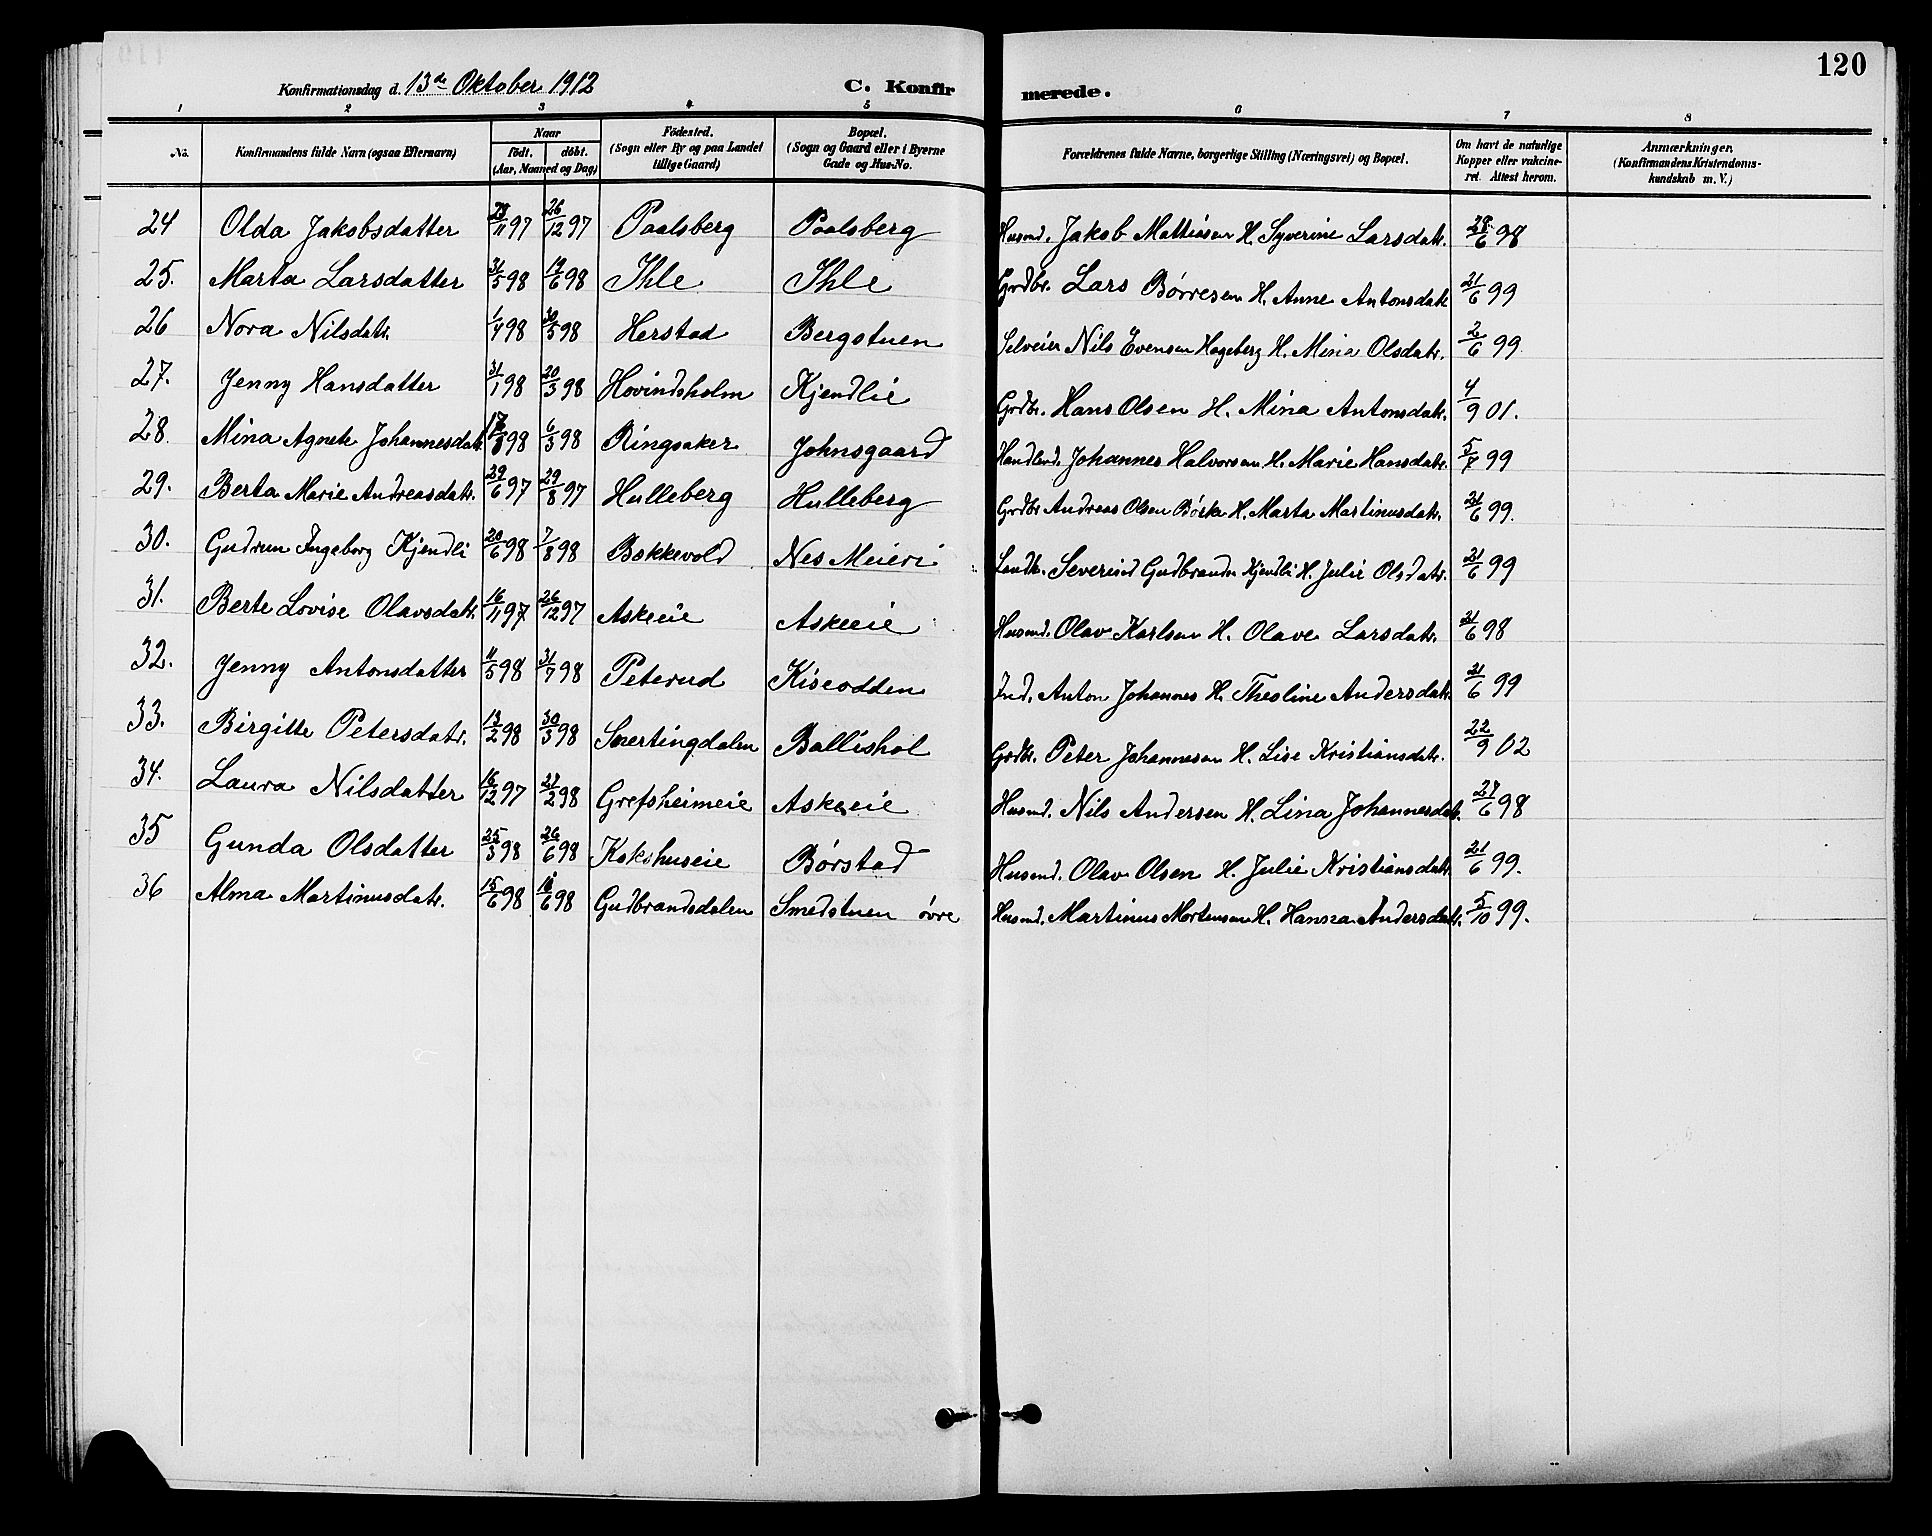 120
Konfirmationsdag d. 13de Oktober 1912 C. Konfirmerede.
1 2 3 4 5 6 7 8
No. Konfirmandens fulde Navn (ogsaa Efternavn) Naar født. døbt. (Aar, Maaned og Dag) Fødested. (Sogn eller By og paa Landet tillige Gaard) Bopæl. (Sogn og Gaard eller i Byerne Gade og Hus-No. Forældrenes fulde Navne, borgerlige Stilling (Næringsvei) og Bopæl. Om havt de naturlige Kopper eller vakcineret. Attest herom. Anmærkninger. (Konfirmandens Kristendomskundskab m. V.)
24 Olda Jakobsdatter /11 97 26/12 97 Paalsberg Paalsberg Husmd. Jakob Mattiasen H. Syverine Larsdatr. 28/6 98
25. Marta Larsdatter 31/5 98 19/6 98 Ihle Ihle Grdbr. Lars Børresen H. Anne Antonsdatr 21/6 99
26 Nora Nilsdatr. 1/4 98 30/5 98 Herstad Bergstuen Selveier Nils Evensen Hageberg H. Mina Olsdatr. 2/6 99
27. Jenny Hansdatter 31/1 98 20/3 98 Hovindsholm Kjendlie Grdbr. Hans Olsen H. Mina Antonsdatr. 4/9 01.
28. Mina Agnete Johannesdatr. 98 6/3 98 Ringsaker Johnsgaard Handlend. Johannes Halvorsen H. Marie Hansdatr. 5/7 99
29. Berta Marie Andreasdatr. 29/6 97 29/8 97 Hulleberg Hulleberg Grdbr Andreas Olsen Børke H. Marta Martinusdatr. 21/6 99.
30. Gudrun Ingeborg Kjendli 20/6 98 7/8 98 Bakkevold Nes Meieri Landh. Severind Gudbrandsen Kjendli H. Julie Olsdatr. 21/6 99
31. Berte Lovise Olavsdatr. 16/11 97 26/12 97 Askeeie Askeeie Husmd. Olav Karlsen H. Olave Larsdatr. 21/6 98
32. Jenny Antonsdatter 11/5 98 31/7 98 Peterud Kiseodden Ind. Anton Johannes H. Theoline Andersdatr. 21/6 99
33. Birgitte Petersdatr. 13/2 98 30/3 98 Snertingdalen Ballishol Grdbr. Peter Johannesen H. Lise Kristiansdatr. 22/9 02
34. Laura Nilsdatter 16/12 97 27/2 98 Grefsheimeie Askeeie Husmd. Nils Andersen H. Lina Johannesdatr. 27/6 98
35 Gunda Olsdatter 25/3 98 26/6 98 Kakshuseie Børstad Husmd. Olav Olsen H. Julie Kristiansdatr. 21/6 99.
36 Alma Martinusdatr. 15/6 98 /6 98 Gudbrandsdalen Smedstuen øvre Husmd. Martinus Mortensen H. Hansea Andersdatr. 5/10 99.